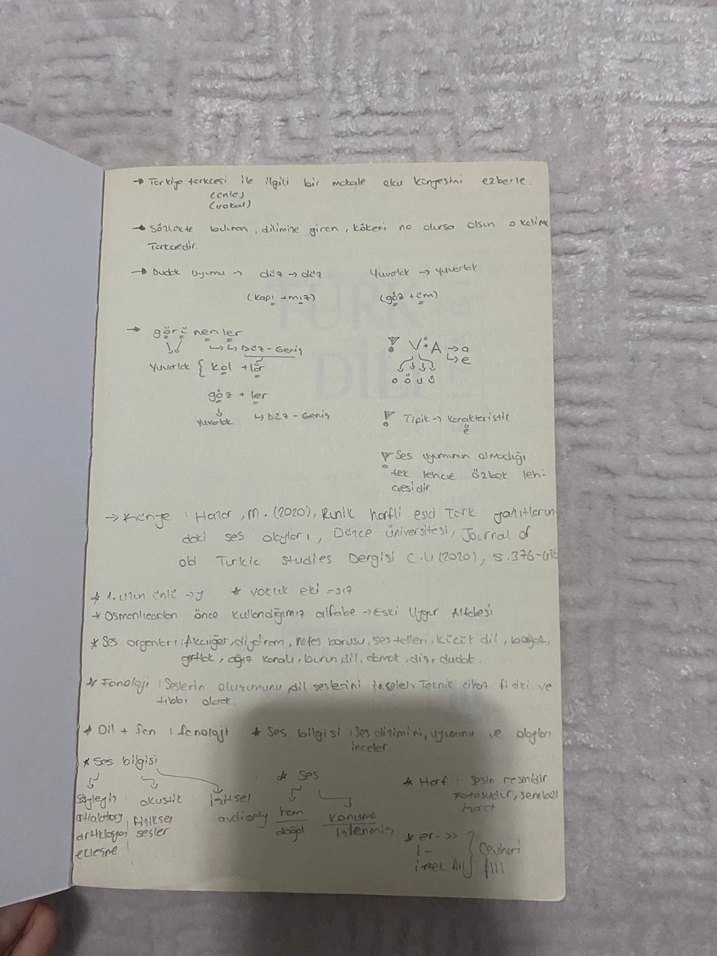 → Türkiye türkcesi ile ilgili bir makale oku künyesini ezberle.
(ünlü)
(vokal)
→ Sözlükte bulunan, dilimize giren, kökeni ne olursa olsun o kelime
Türkcedir.
→ Dudak uyumu → düz → düz Yuvarlak → yuvarlak
(kapı + mız) (göz + üm)
→ görünenler
↳ ↳ Düz - Geniş
Yuvarlak { kol + lar
göz + ler
Yuvarlak ↳ Düz - Geniş
V + A → a
↳ e
o ö u ü
Tipik → karakteristik
Ses uyumunun olmadığı
tek lehce özbek leh-
cesidir
→ Künye : Hazar, M. (2020), Runik harfli eski Türk yazıtların-
daki ses olayları, Düzce üniversitesi, Journal of
old Turkic Studies Dergisi (2020), S. 376-
* 1. uzun ünlü → y * yokluk eki → sız
* Osmanlıcadan önce kullandığımız alfabe → Eski Uygur Alfabesi
* Ses organları : Akciğer, diyafram, nefes borusu, ses telleri, küçük dil, boğaz,
gırtlak, ağız kanalı, burun, dil, damak, diş, dudak.
* Fonoloji : Seslerin oluşumunu, dil seslerini inceler. Teknik cihaz fiziki ve
tıbbi olarak.
* Dil + fen : fenoloji * Ses bilgisi : Ses dizimini, uyumunu ve olayları
inceler.
* Ses bilgisi
Söyleyiş akustik işitsel
fiziksel
sesler
* Ses
ham konuşma
doğal işlenmiş
* Harf : Sesin resmidir.
Fotosudur, sembol
işaret
* er- >>
i-
i-mek fiil
Cevheri
fiil